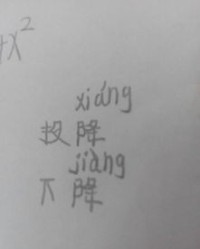 +x²
xiáng
投降
jiàng
下降